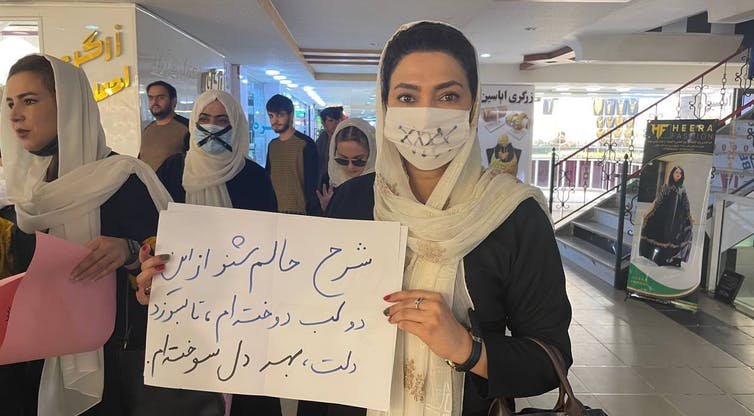 زرگری
زرگری اباسین
HF HEERA
FASHION
شرح حالم شنو از این
دو لب دوخته‌ام، تا بسوزد
دلت، بهر دل سوخته‌ام.